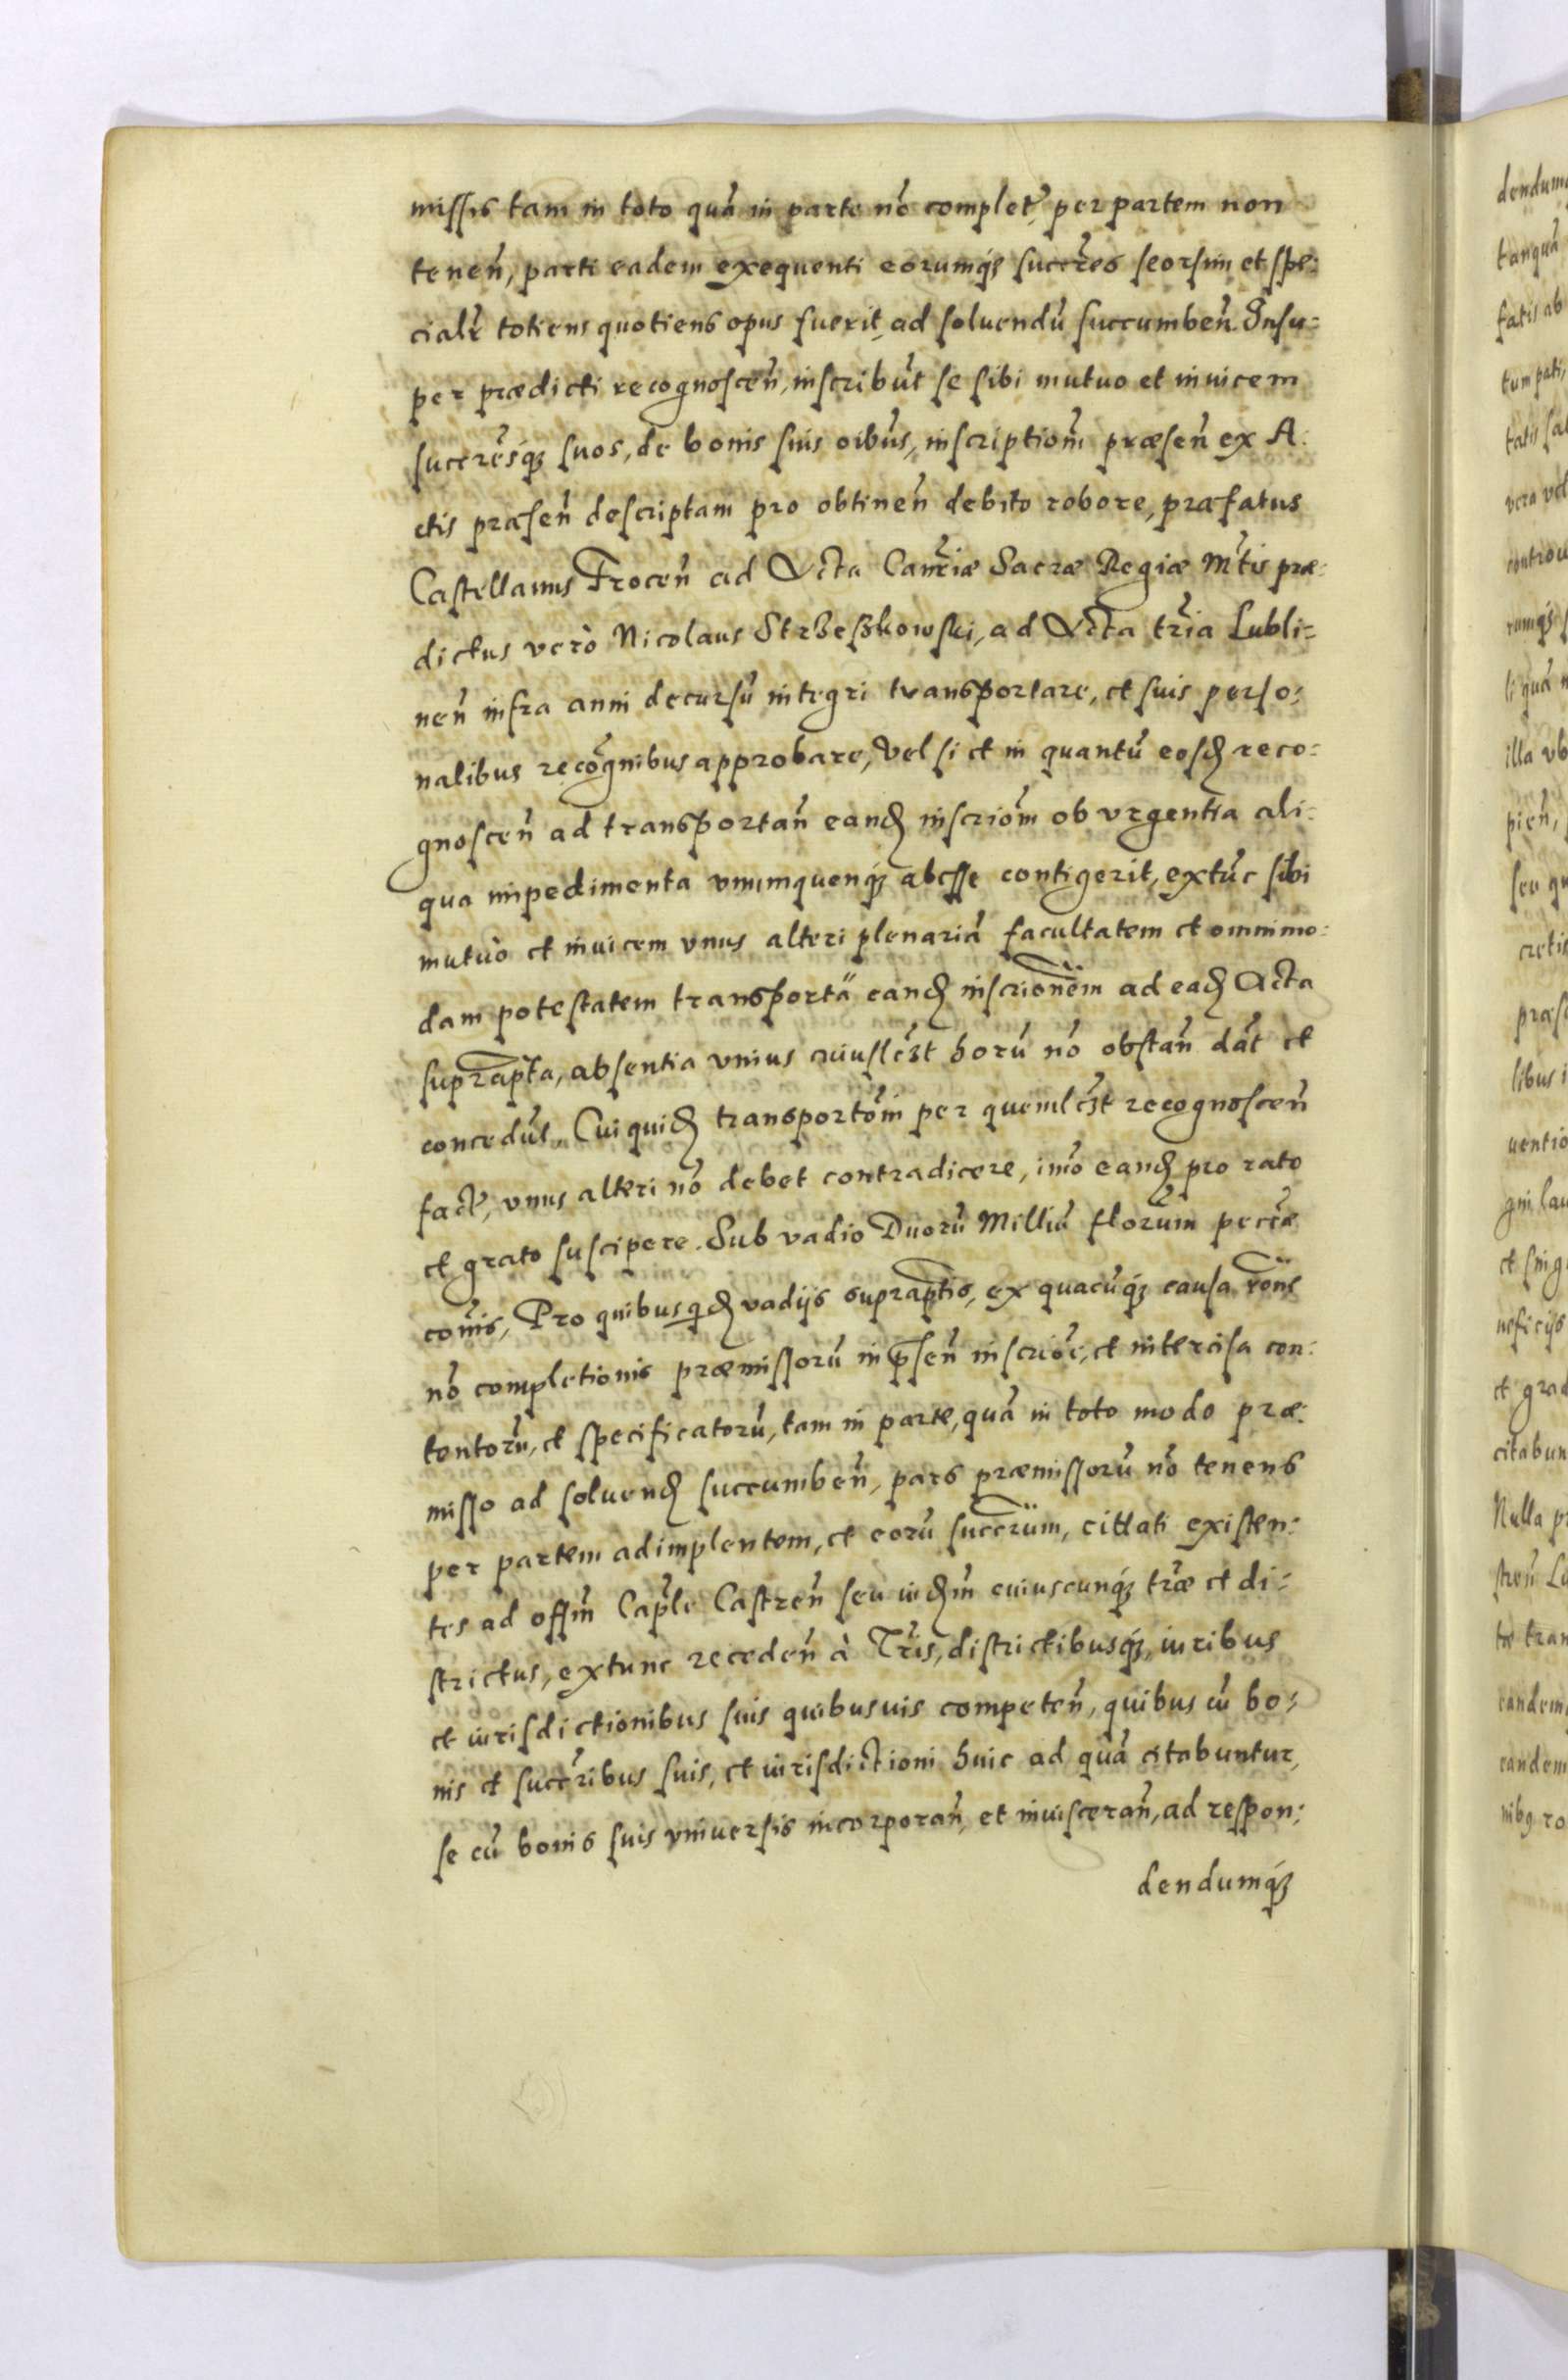 missis tam in toto quā in parte nō complet̃, per partem non
teneñ, parti eadem exequenti eorumq́ꝫ succr̃es seorsim et spe:
cialr̃ totiens quotiens opus fuerit, ad soluendū succumbeñ. Insu:
per prædicti recognosceñ, inscribūt se sibi mutuo et inuicem
succr̃esq́ꝫ suos, de bonis suis oib̃us, inscriptiom̃ præseñ ex A:
ctis præseñ descriptam pro obtineñ debito robore, præfatus
Castellanus Troceñ ad Acta Canr̃iæ Sacræ Regiæ Mt̃is præ:
dictus verò Nicolaus Strżeszkowski, ad Acta tr̃ia Lubli:
neñ infra anni decursū integri transportare, et suis perso:
nalibus recõgnibus approbare, Vel si et in quantū eosꝺ reco:
gnosceñ ad transportañ eanꝺ inscriom̃ ob vrgentia ali:
qua impedimenta vnumquenq́ꝫ abesse contigerit, extūc sibi
mutuò et inuicem vnus alteri plenariā facultatem et omnimo:
dam potestatem transportā̈ eanꝺ inscrionẽm ad eaꝺ Acta
suprap̃ta, absentia vnius cuiusl̃ꝫt horū nō obstañ dāt et
concedūt. Cui quiꝺ transportom̃ per queml̃ꝫt recognosceñ
fact̃, vnus alteri nō debet contradicere, imō eanꝺ pro rato
et grato suscipere. Sub vadio Duorū Milliū florūm peccæ̃
com̃is, Pro quibus qꝺ vadijs suprap̃tis, ex quacūq́ꝫ causa rõne
nō completionis præmissorū in p̃señ inscriõe, et intercisa con:
tentorū, et specificatorū, tam in parte, quā in toto modo præ:
misso ad soluenꝺ succumbeñ, pars præmissorū nō tenens
per partem adimplentem, et eorū succr̃um, cittati existen:
tes ad offm̃ Cap̃le Castreñ seu iuꝺm̃ cuiuscunq́ꝫ tr̃æ et di:
strictus, extunc recedeñ à Tr̃is, districtibusq́ꝫ, iuribus
et iurisdictionibus suis quibusuis competeñ, quibus cū bo:
nis et succr̃ibus suis, et iurisdictioni huic ad quā citabuntur,
se cū bonis suis vniuersis incorporañ, et inuisceran̄, ad respon:
dendumq́ꝫ